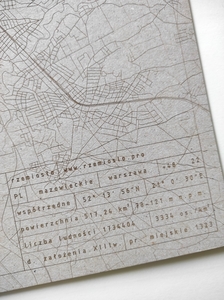 rzemiosło www.rzemioslo.pro
PL mazowieckie warszawa +48 22
współrzędne 52° 13' 56"N 21° 0' 30"E
powierzchnia 517,24 km² 78-121 m n.p.m.
liczba ludności 1734404 3334 os./km²
d. założenia XIIIw, pr. miejskie 1323